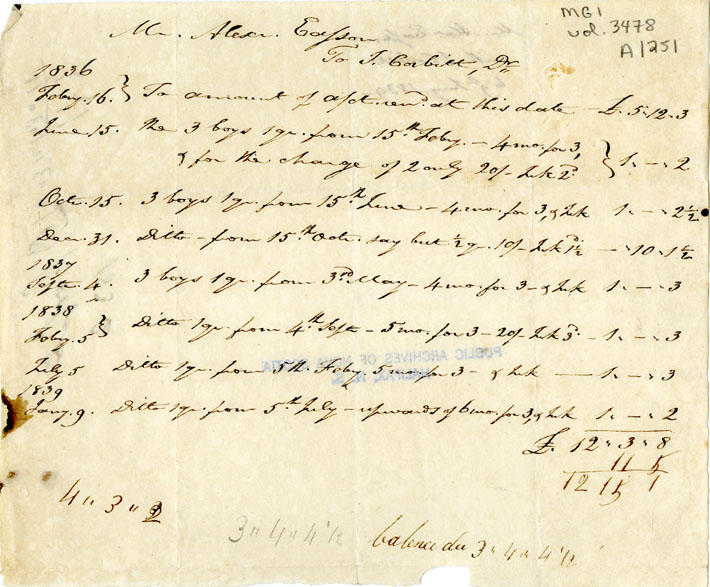 MG1
vol. 3478
A1251
Mr. Alexr. Easson
To T. Corbitt, Dr.
1836
Feby. 16. } To amount of acct. rend. at this date - £. 5 " 12 . 3
June 15. the 3 boys 1 qr. from 15th Feby. - 4 mo. for 3,
& for the charge of 2 only 20/- Ink 2d. } 1 " - " 2
Octr. 15. 3 boys 1 qr. from 15th June - 4 mo. for 3, & Ink 1 " - " 2 1/2
Decr. 31. Ditto - from 15th Octr. say but 1/2 q. 10/- Ink 1 1/2d - " 10 " 1 1/2
1837
Septr. 4. 3 boys 1 qr. from 3rd May - 4 mo. for 3 - & Ink 1 " - " 3
1838
Feby. 5 } Ditto 1 qr. from 4th Septr - 5 mo. for 3 - 20/- Ink 3d. - 1 " - " 3
PUBLIC ARCHIVES OF NOVA SCOTIA
HALIFAX, N. S.
July 5 Ditto 1 qr. from 5th Feby 5 mo. for 3 - & Ink - 1 " - " 3
1839
Jany. 9. Ditto 1 qr. from 5th July - upwards of 6 mo. for 3, & Ink 1 " - " 2
£. 12 " 3 " 8
11 5
12 15 1
4 " 3 " 2
3 " 4 " 4 1/2
balence du 3 " 4 " 4 1/2